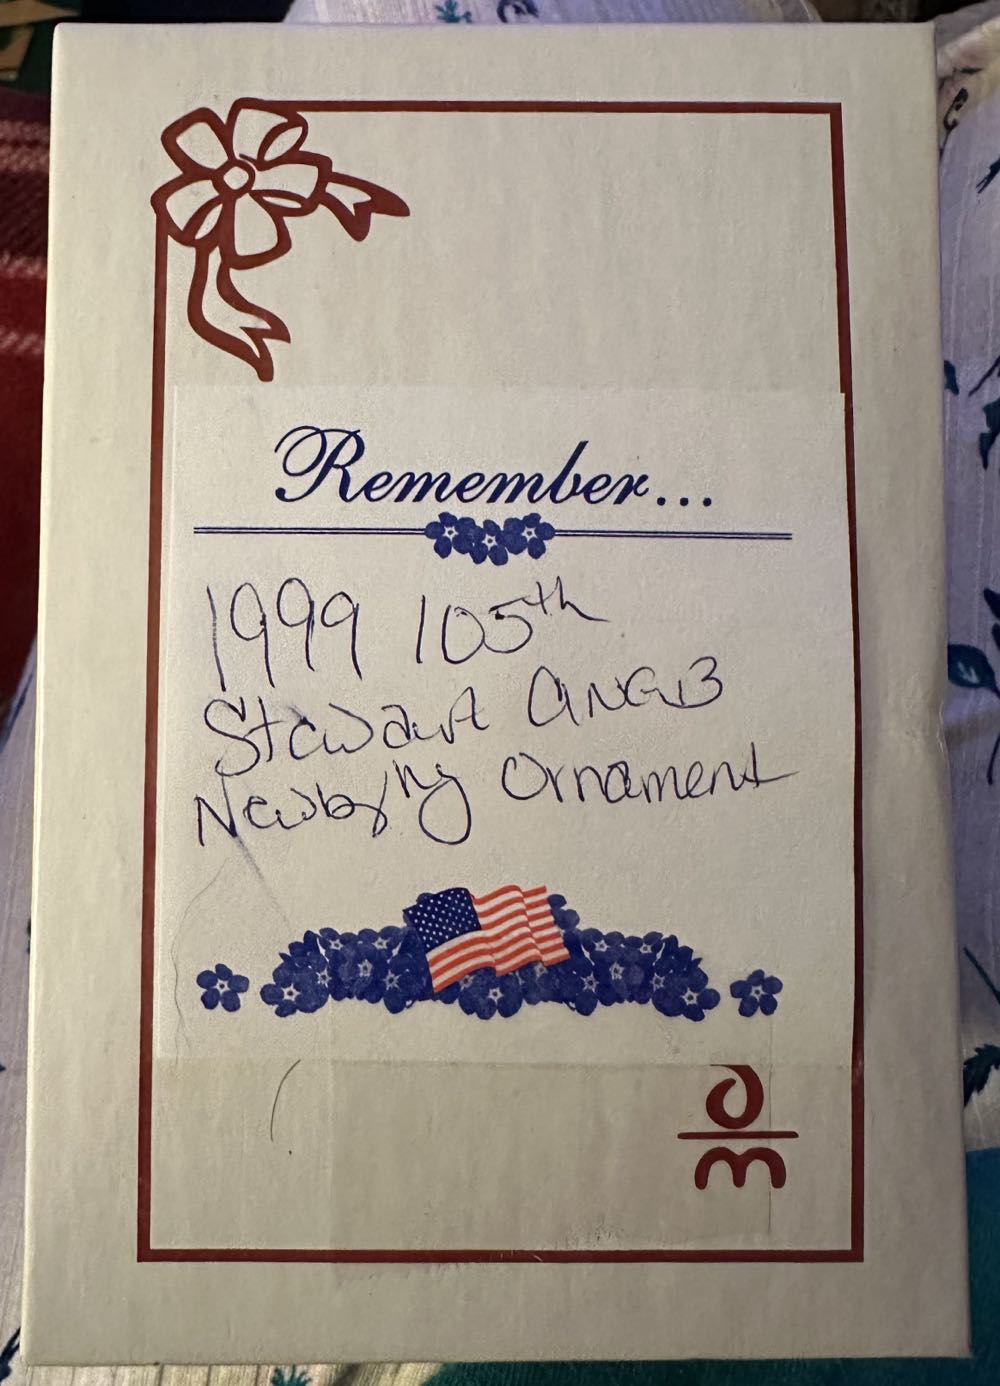 Remember...
1999 105th
Stewart ANGB
Newburg Ornament